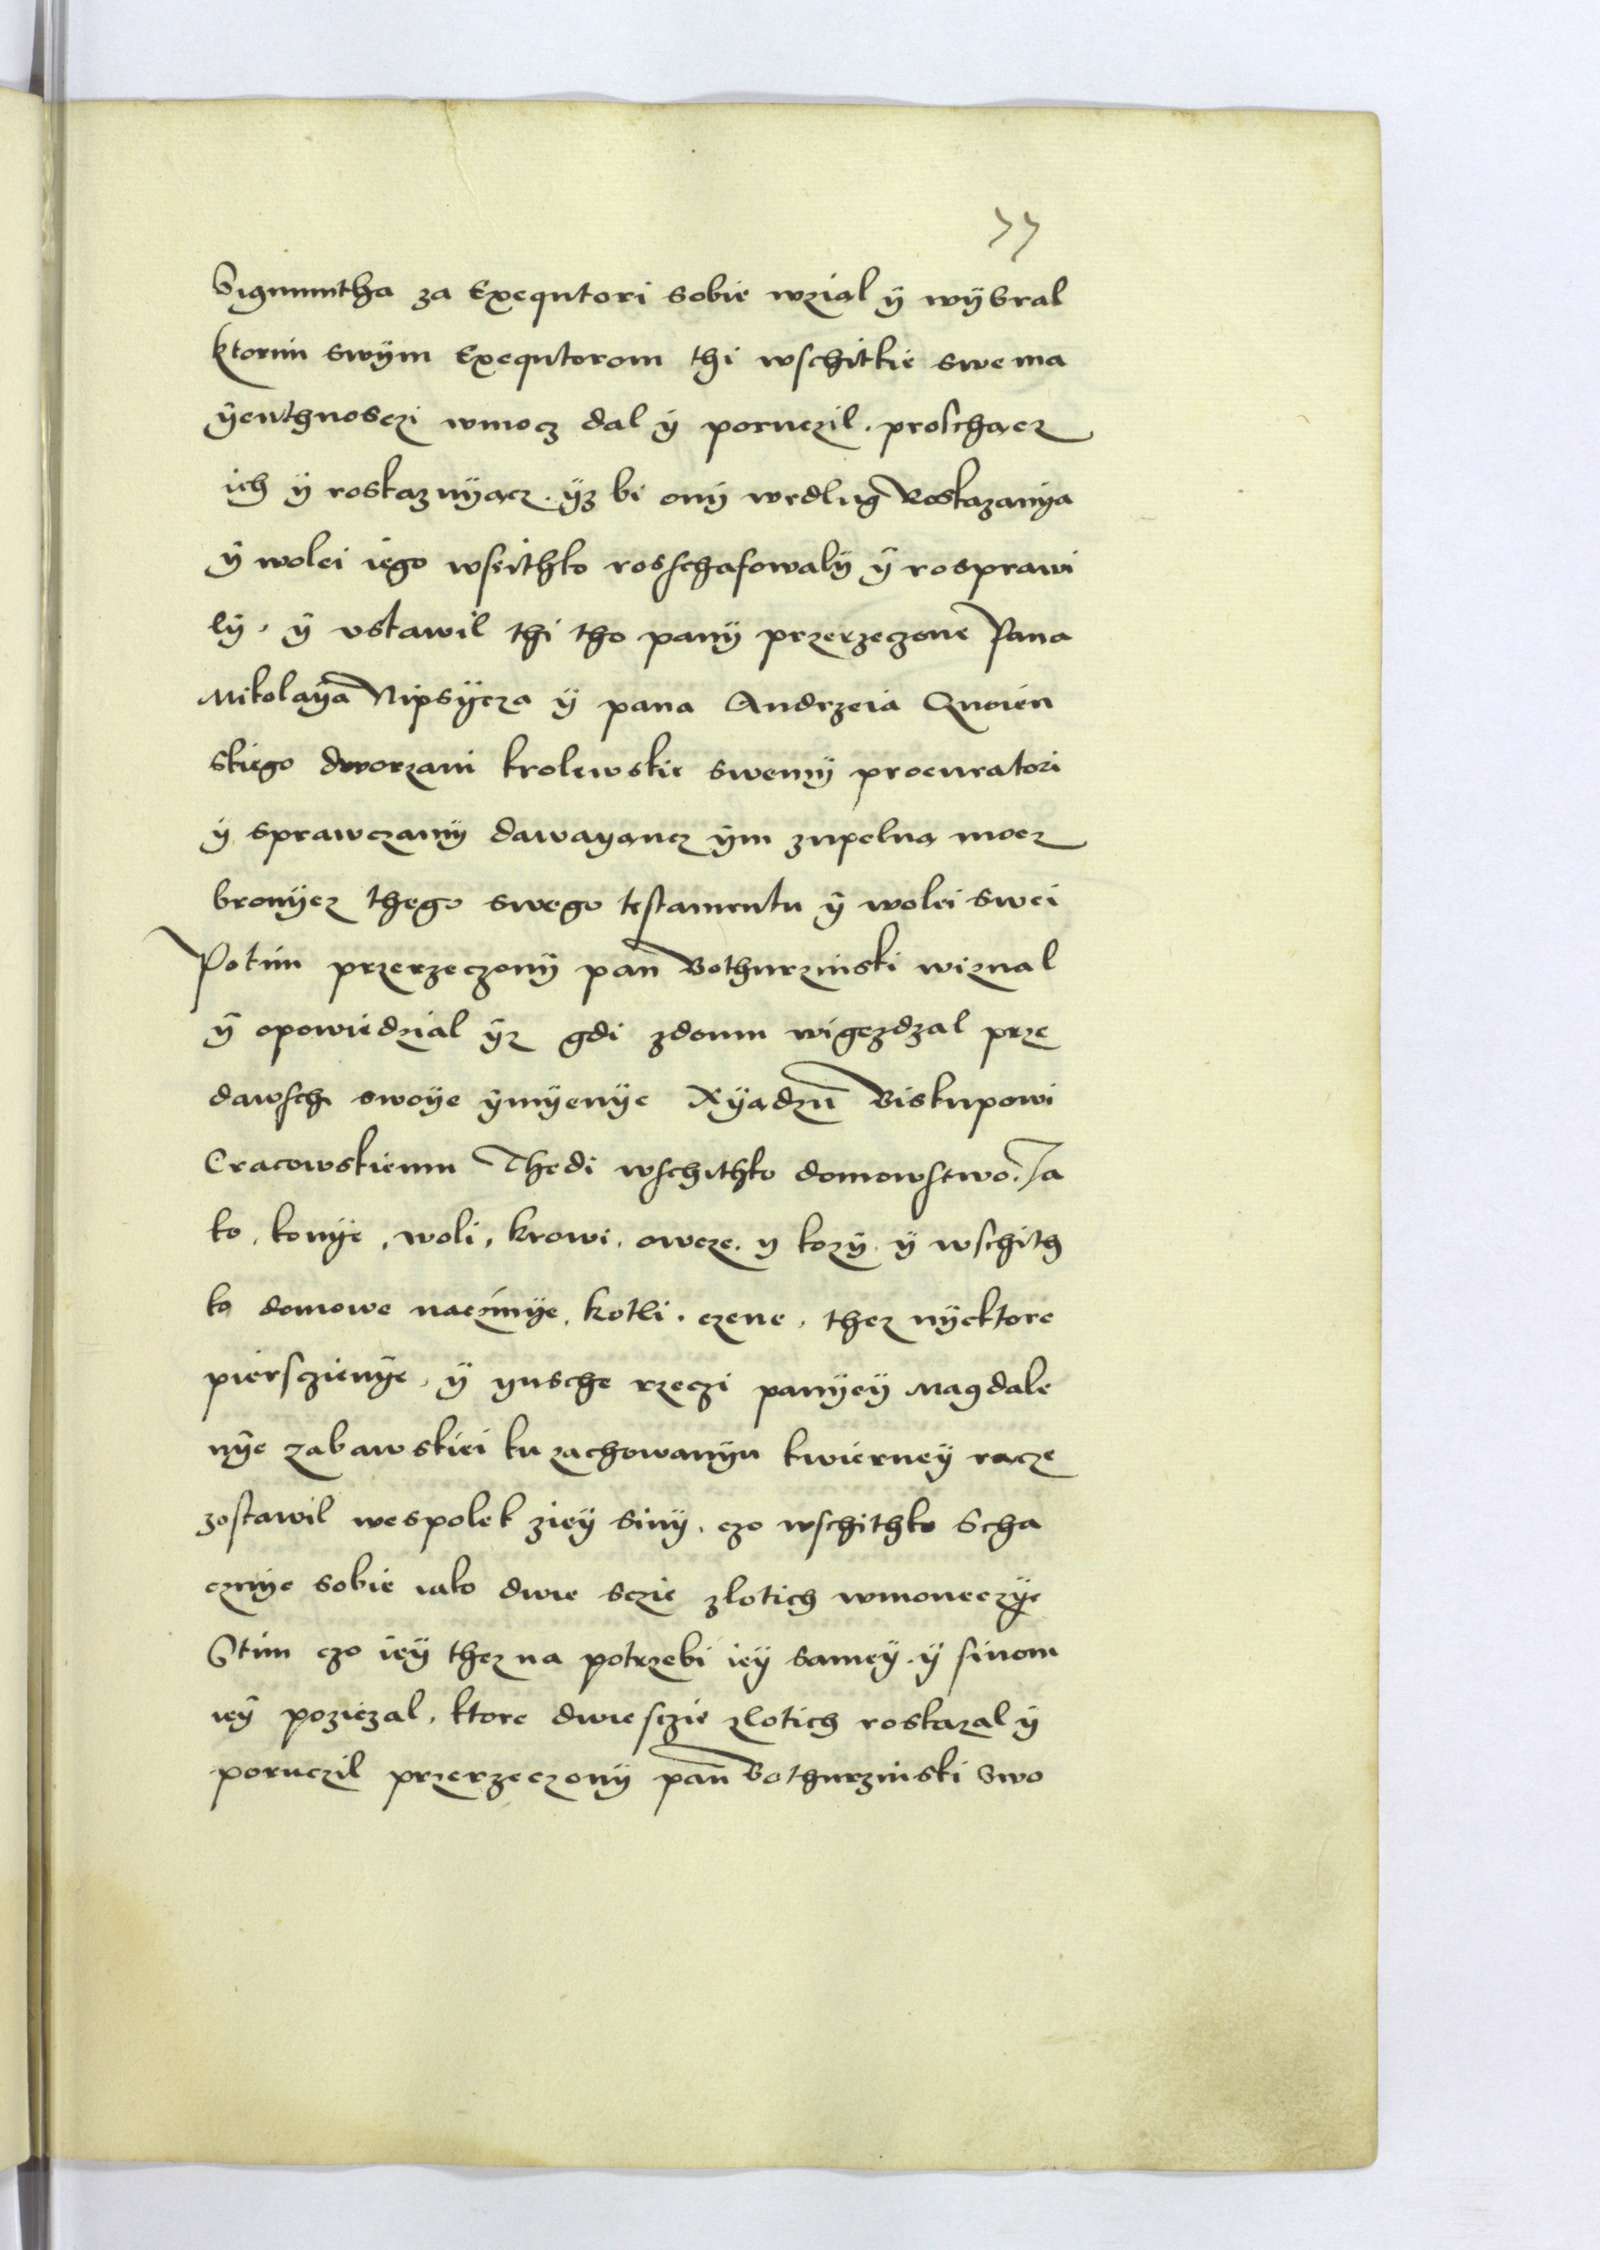 77
Sigmuntha za Exequtori sobie wzial ÿ wÿbral
ktorim swÿm Exequtorom thi wschitkie swe ma
ÿenthnosczi wmocz dal ÿ poruczil . proschącz
ich ÿ roskazuÿącz . ÿz bi onÿ wedlug Roskazanÿa
ÿ wolei iego wscithko rosschafowalÿ ÿ rosprawi
lÿ , ÿ vstawil thi tho panÿ przerzeczone Pana
Mikolaÿa Nipsÿcza ÿ pana Andrzeia Gnoien
skiego dworzani krolewskie swemÿ procuratori
ÿ sprawczamÿ dawayancz ÿm zupelną mocz
bronÿcz thego swego testamentu ÿ wolei swei
Potim przerzeczonÿ pan Bothurzinski wiznal
ÿ opowiedzial ÿz gdi zdomu wigezdzal prze
dawsch swoÿe ÿmÿenÿe Xÿądzu Biskupowi
Cracowskiemu Thedi wschithko domowstwo . Ja
ko , konÿe , woli , krowi , owcze . y kozÿ . ÿ wschith
ko domowe naczinÿe , kotli . czene , thez nÿektore
pierscziënÿe , ÿ ynsche rzeczi panÿeÿ Magdale
nÿe Zabawskiei ku zachowanÿu kwierneÿ racze
zostawil wespolek zieÿ sinÿ . czo wschithko Scha
cznÿe sobie iako dwie sczie zlotich wmoneczÿe
Stim czo ieÿ thez na potrzebi ieÿ sameÿ . ÿ sinom
ieÿ pozieczal , ktore dwiesczie zlotich roskazal ÿ
poruczil przerzeczonÿ pan Bothurzinski Swo